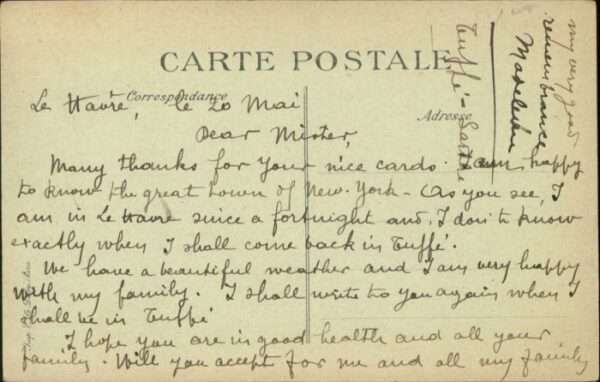 CARTE POSTALE
Correspondance
Adresse
Le Havre, le 20 Mai
Dear Mister,
Many thanks for your nice cards. I am happy
to know the great town of New-York - As you see, I
am in Le Havre since a fortnight and I don't know
exactly when I shall come back in Tuffé.
We have a beautiful weather and I am very happy
with my family. I shall write to you again when I
shall be in Tuffé
I hope you are in good health and all your
family. Will you accept for me and all my family
my very good
remembrance
Madeleine
Tuffé - Sarthe